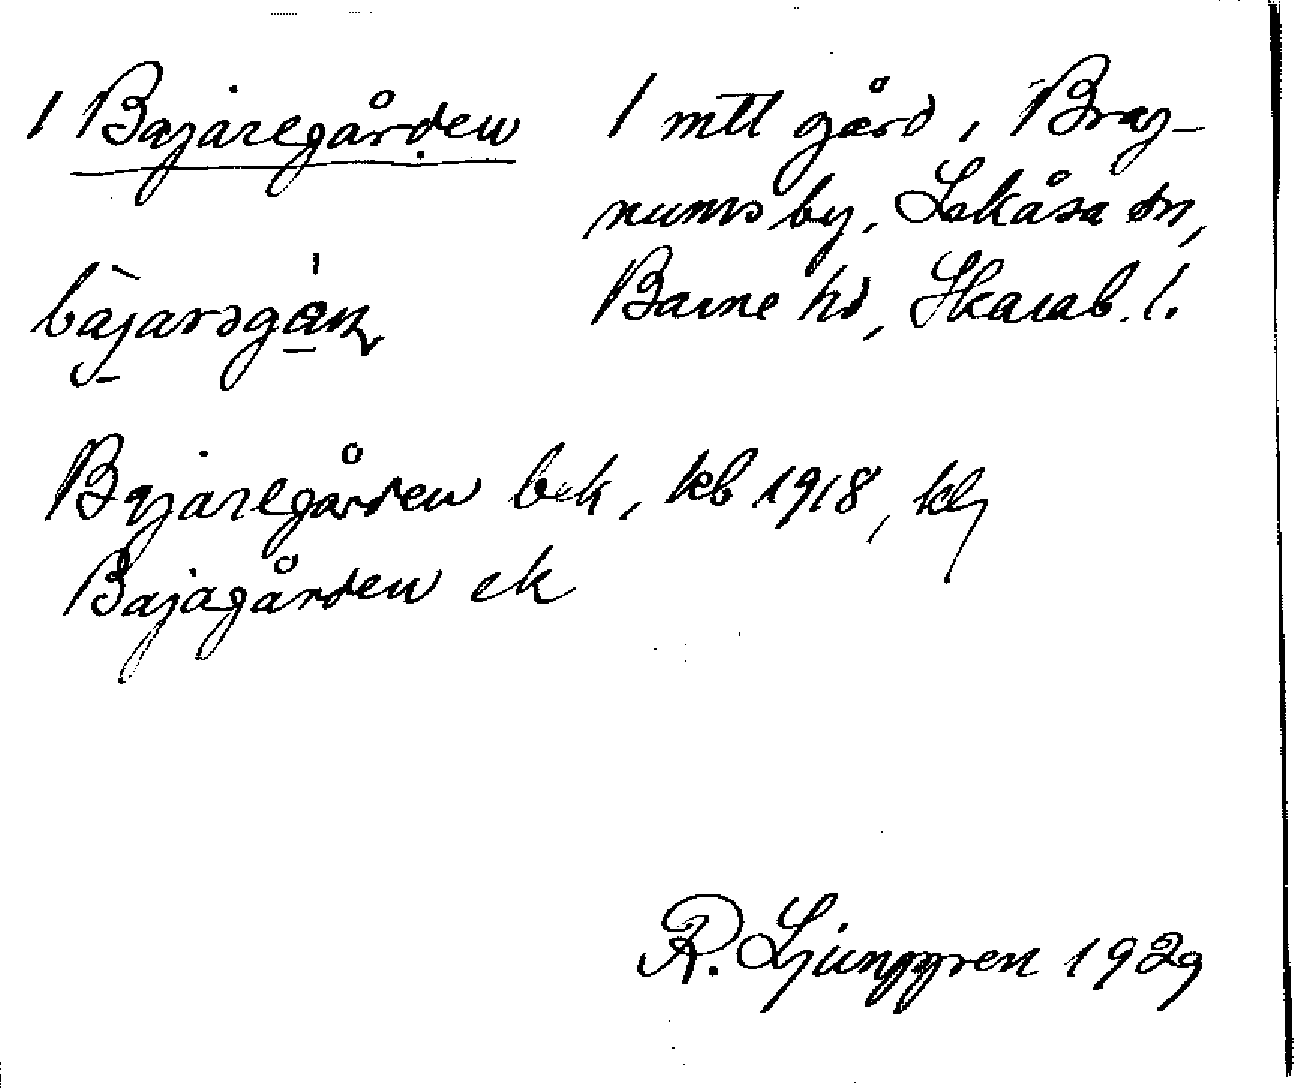 1 Bajaregården
1 mtl gård, Brag-
nums by, Lekåsa sn,
Barne hd, Skarab. l.
bajarəgan
Bajaregården bek, kb 1918, klg
Bajagården ek
R. Ljunggren 1929